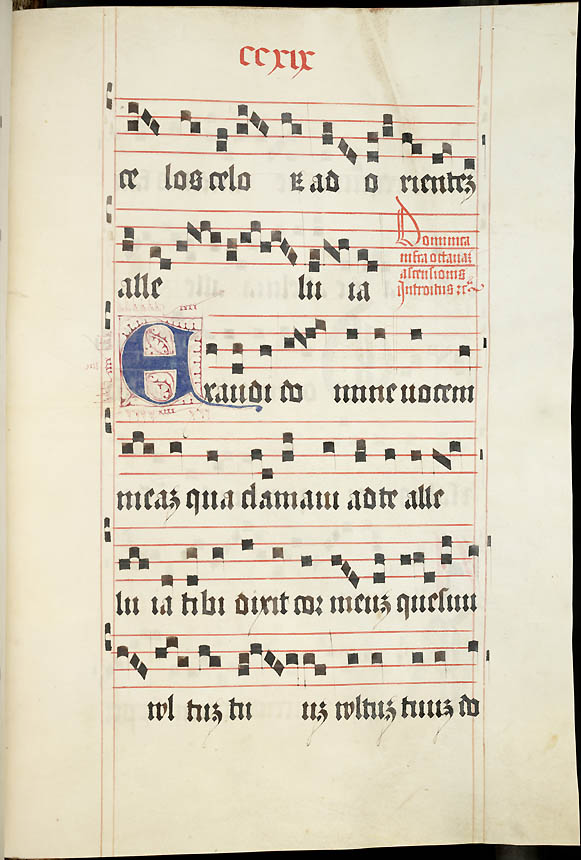 ccxix
ce los celo ꝛ ad o rientez
alle lu ia
Dominica
infra octauaz
ascensionis
Introitus
Exaudi do mine uocem
meaz qua clamaui ad te alle
lu ia tibi dixit cor meuz quesiui
vul tuz tu uz vultuz tuuz do